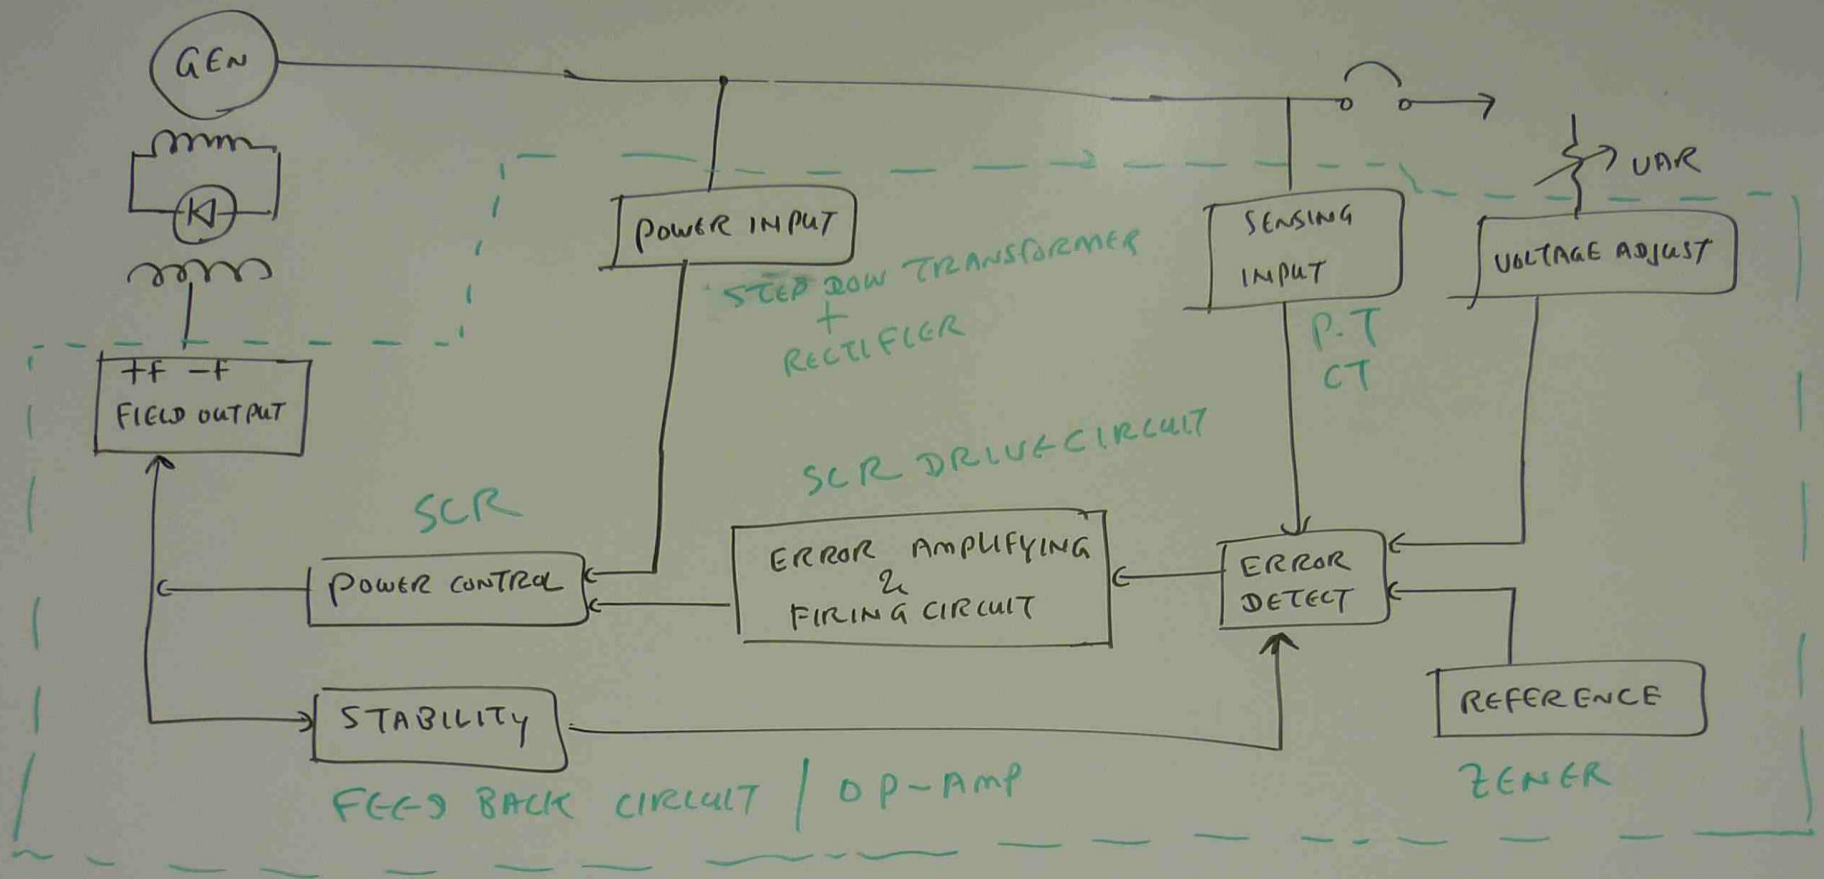 GEN
VAR
POWER INPUT
SENSING
INPUT
VOLTAGE ADJUST
STEP DOW TRANSFORMER
+
RECTIFIER
P.T
CT
+F -F
FIELD OUTPUT
SCR
SCR DRIVE CIRCUIT
POWER CONTROL
ERROR AMPLIFYING
&
FIRING CIRCUIT
ERROR
DETECT
STABILITY
REFERENCE
FEED BACK CIRCUIT / OP-AMP
ZENER